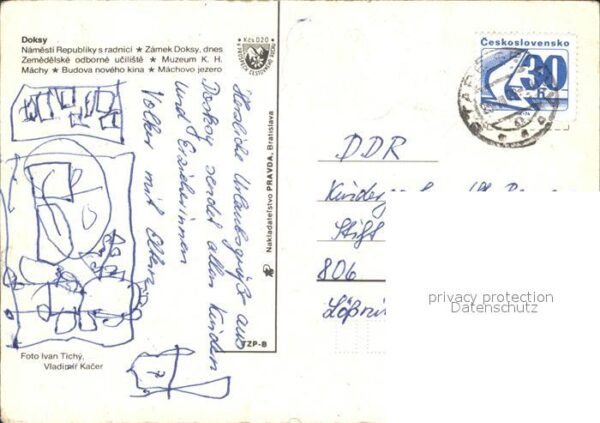 Doksy
Náměstí Republiky s radnicí ★ Zámek Doksy, dnes
Zemědělské odborné učiliště ★ Muzeum K. H.
Máchy ★ Budova nového kina ★ Máchovo jezero
Kčs 0,20
Herzliche Urlaubsgrüße aus
Docksy sendet allen Kindern
und Erzieherinnen
Volker mit Eltern
Nakladatelství PRAVDA, Bratislava
TZP-B
Foto Ivan Tichý,
Vladimír Kačer
Československo
30
h
DDR
Stift
806
privacy protection
Datenschutz